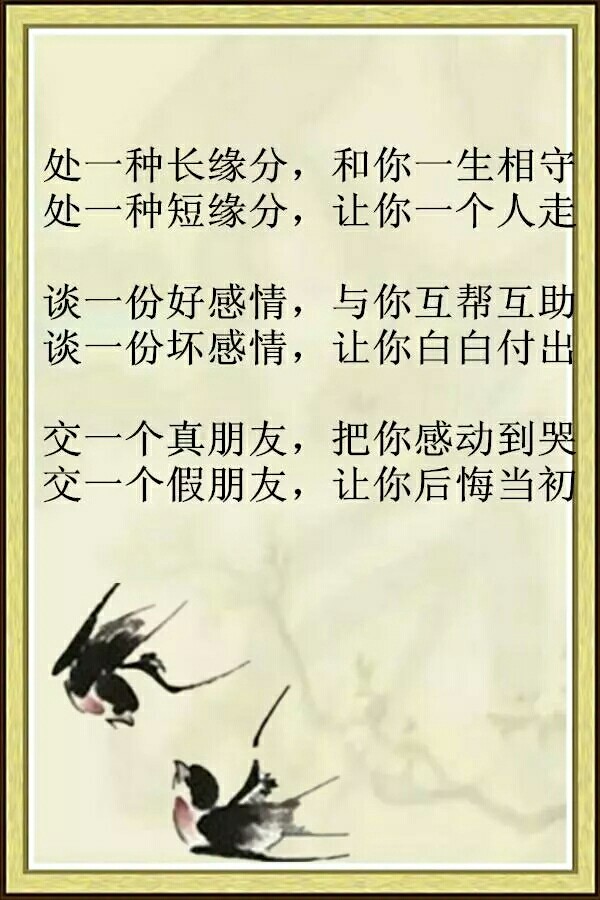 处一种长缘分，和你一生相守
处一种短缘分，让你一个人走
谈一份好感情，与你互帮互助
谈一份坏感情，让你白白付出
交一个真朋友，把你感动到哭
交一个假朋友，让你后悔当初